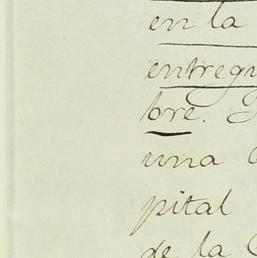 en la
entregu
bre.
una
pital
de la